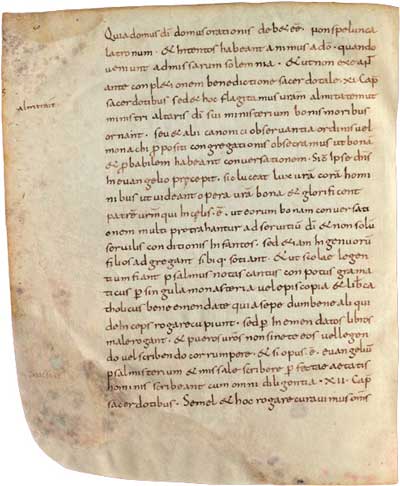 Quia domus dī domus orationis debet eē · non spelunca
latronum · & intentos habeant animus ad ō · quando
veniunt ad missarum solemnia · & ut non exeant
ante completionem benedictione sacerdotale · XI · Cap
sacerdotibus · sed & hoc flagitamus vram̄ almitatem ut
ministri altaris dī suū ministerium bonis moribus
ornant · seu & alii canonici observantia ordinis vel
monachi ꝓpositi congregationis obsecramus ut bonā
& ꝓbabilem habeant conversationem · Sic ipse dn̄s
in euangelio precepit · sic luceat lux vrā corā homi
nibus ut videant opera vrā bona & glorificent
patrē vrm̄ qui in celis · ē · ut eorum bonam conversati
onem multi pretrahantur ad servitiū dī & non solū
servilis conditionis infantes · sed etiam ingenuorū
filios adgregant sibiq · sotiant · & ut scolae legen
tium fiant psalmus notas cantus conpotus grama
ticus ꝑ singula monasteria vel opiscopia & lib ca
tholicus bene emendate quia sepe dum bene aliqui
dem cops rogare cupiunt · sed ꝑ inemendatos libros
male rogant · & pueros vrōs non sinete eos vel legen
do vel scribendo corrumpere · & si opus · ē · evangeliū
psalmisterium & missale scribere ꝑfectae aetatis
hominis scribeant cum omni diligentia · XII · Cap
sacerdotibus · Semel & hoc rogare curavimus om̄s